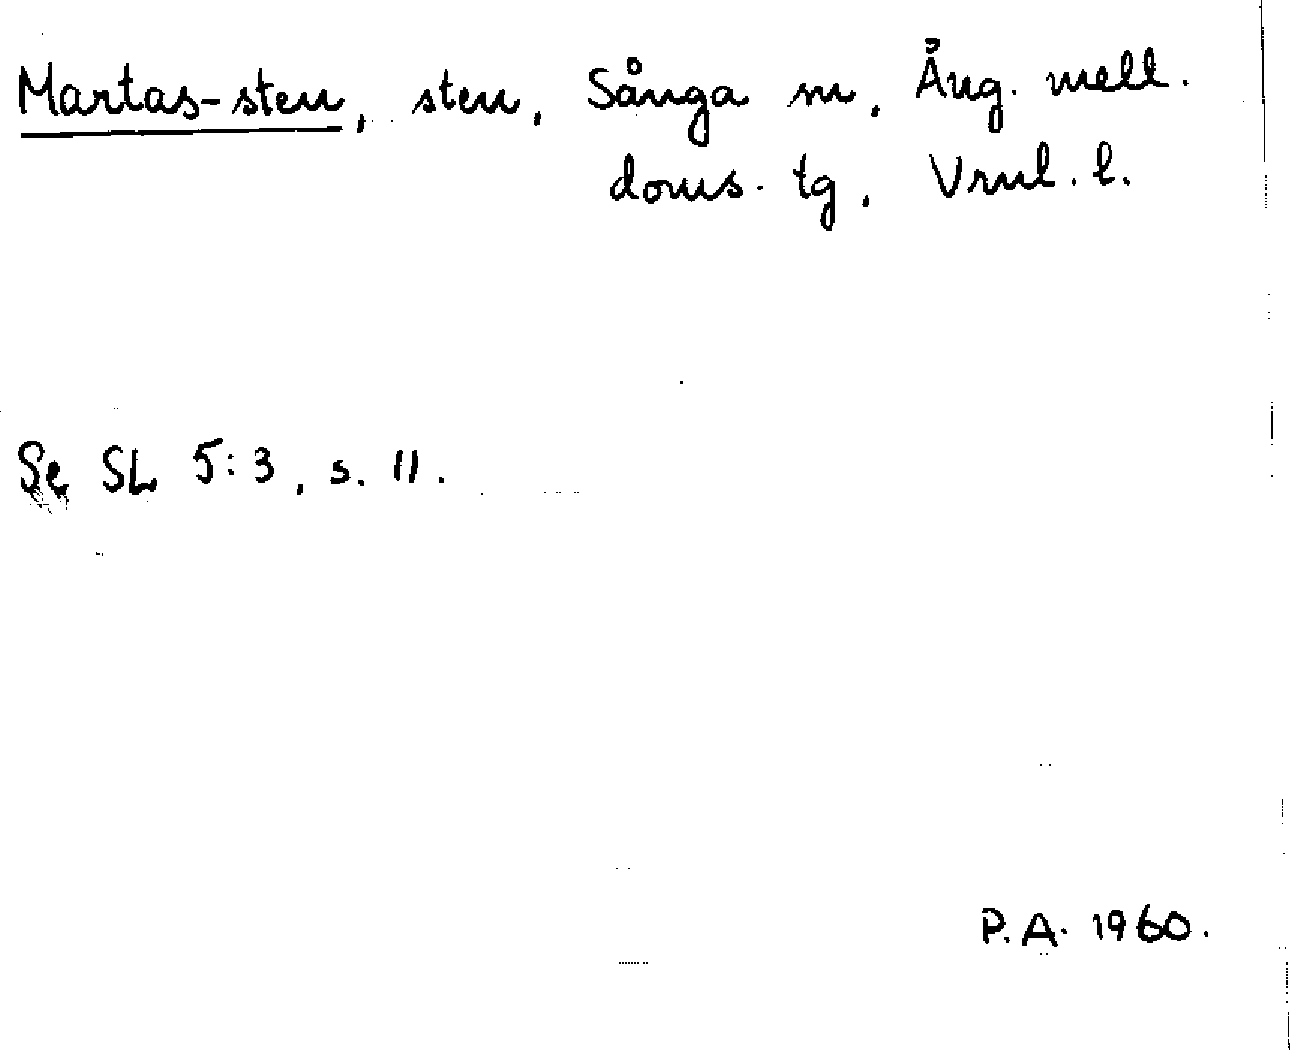 Martas-sten, sten, Sånga sn, Ång. mell.
doms. tg, Vrnl. l.
Se SL 5:3, s. 11.
P.A. 1960.